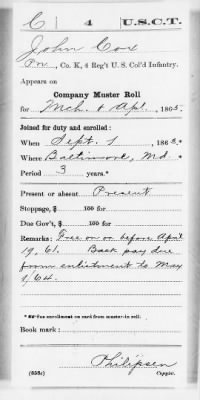 C 4 U.S.C.T.
John Cox
Pvt, Co. K, 4 Reg't U. S. Col'd Infantry.
Appears on
Company Muster Roll
for Mch. & Apl., 1865.
Joined for duty and enrolled:
When Sept. 1, 1863.*
Where Baltimore, Md. *
Period 3 years.*
Present or absent Present
Stoppage, $ 100 for
Due Gov't, $ 100 for
Remarks: Free on or before April
19, 61. Back pay due
from enlistment to May
1, 64.
* See enrollment on card from muster-in roll.
Book mark:
Philipsen
(858c) Copyist.